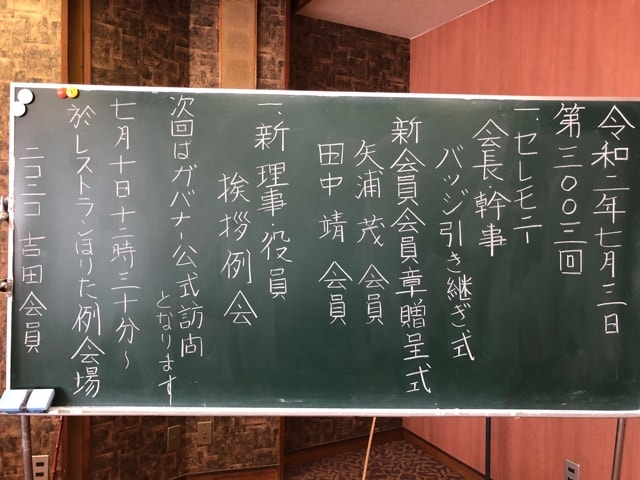 令和二年七月三日
第三〇〇三回
一、セレモニー
会長幹事
バッジ引き継ぎ式
新会員会員章贈呈式
矢浦茂会員
田中靖会員
一、新理事・役員
挨拶例会
次回はガバナー公式訪問
となります
七月十日十二時三十分～
於レストランほりた例会場
ニコニコ 吉田会員